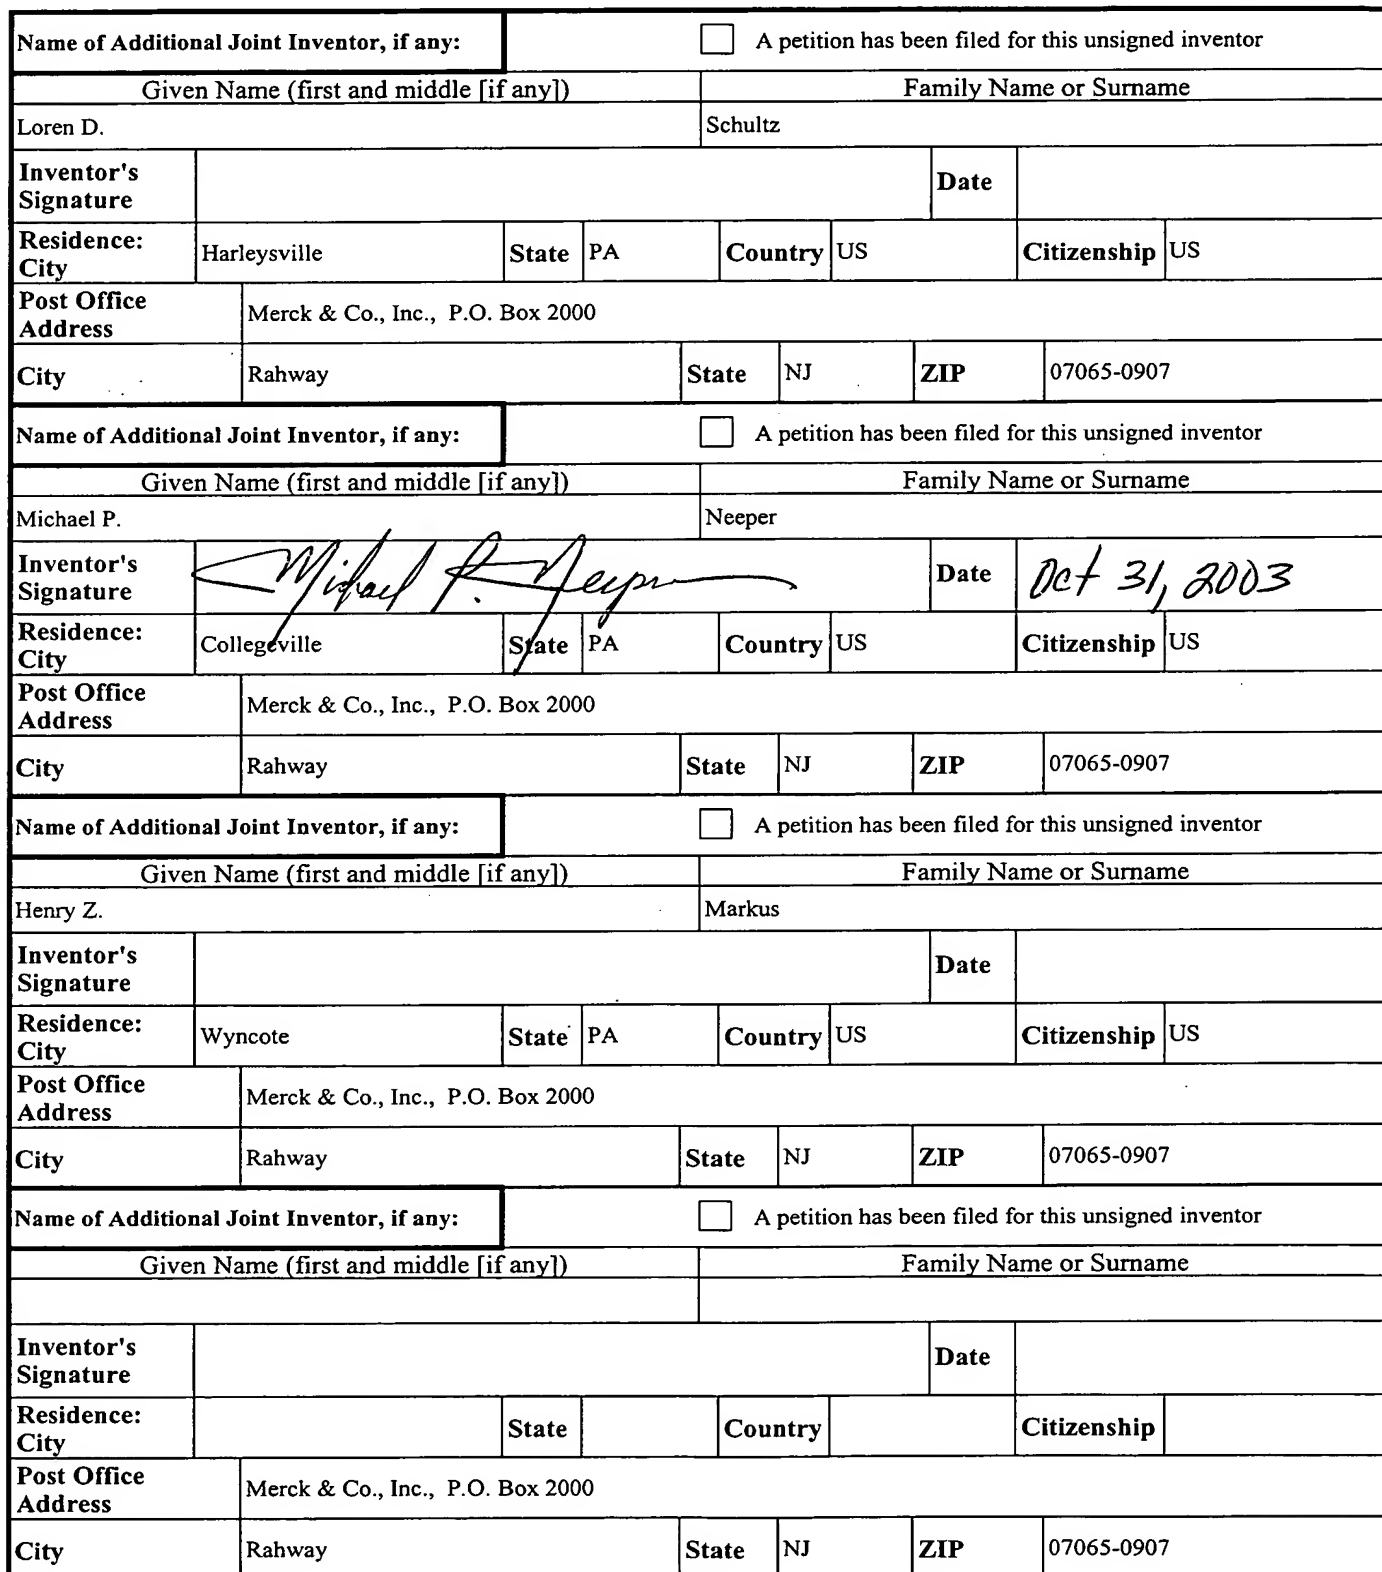 Name of Additional Joint Inventor, if any: A petition has been filed for this unsigned inventor
Given Name (first and middle [if any]) Family Name or Surname
Loren D. Schultz
Inventor's Signature Date
Residence: City Harleysville State PA Country US Citizenship US
Post Office Address Merck & Co., Inc., P.O. Box 2000
City Rahway State NJ ZIP 07065-0907
Name of Additional Joint Inventor, if any: A petition has been filed for this unsigned inventor
Given Name (first and middle [if any]) Family Name or Surname
Michael P. Neeper
Inventor's Signature Michael P. Neeper Date Oct 31, 2003
Residence: City Collegeville State PA Country US Citizenship US
Post Office Address Merck & Co., Inc., P.O. Box 2000
City Rahway State NJ ZIP 07065-0907
Name of Additional Joint Inventor, if any: A petition has been filed for this unsigned inventor
Given Name (first and middle [if any]) Family Name or Surname
Henry Z. Markus
Inventor's Signature Date
Residence: City Wyncote State PA Country US Citizenship US
Post Office Address Merck & Co., Inc., P.O. Box 2000
City Rahway State NJ ZIP 07065-0907
Name of Additional Joint Inventor, if any: A petition has been filed for this unsigned inventor
Given Name (first and middle [if any]) Family Name or Surname
Inventor's Signature Date
Residence: City State Country Citizenship
Post Office Address Merck & Co., Inc., P.O. Box 2000
City Rahway State NJ ZIP 07065-0907